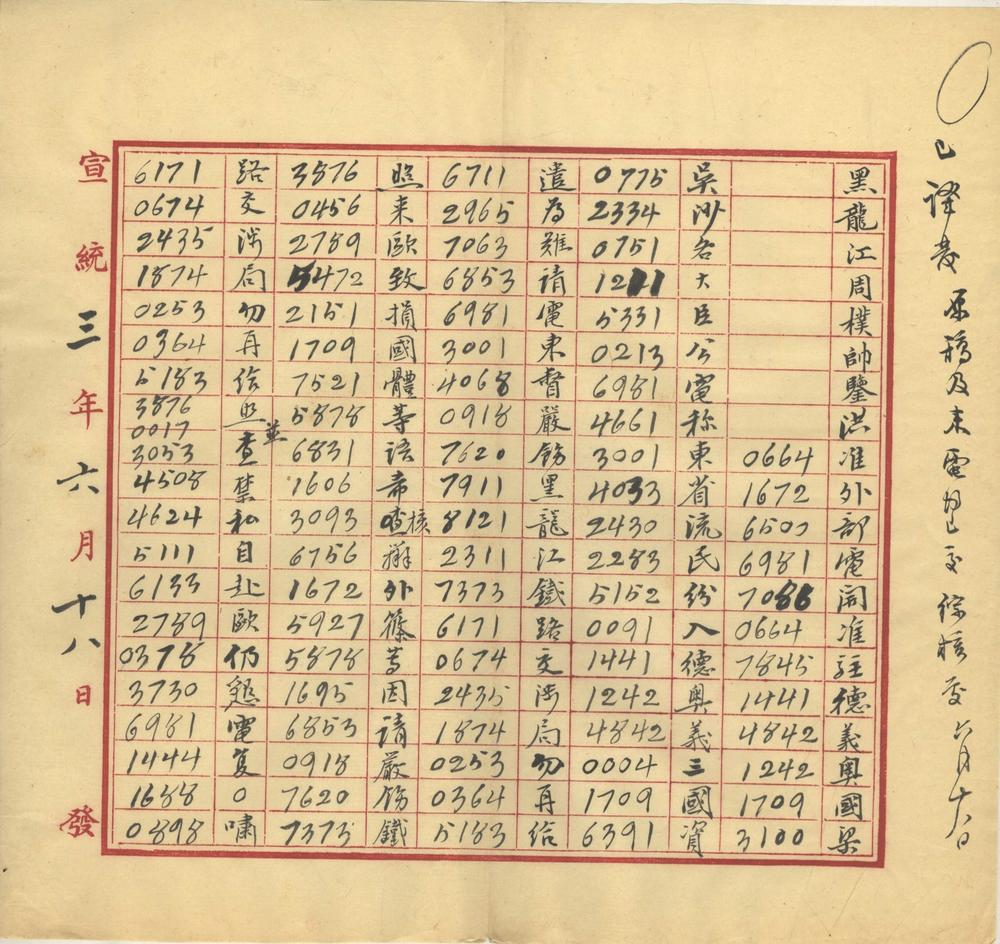 已譯發原稿及来電均已交綜核處六月十八日
黑龍江周樸帥鑒洪准外部電開准駐德義奧國梁
0664 1672 6500 6981 7086 0664 7845 1441 4842 1242 1709 3100
吳沙各大臣公電称東省流民紛入德奧義三國資
0775 2334 0751 1211 5331 0213 6981 4661 3001 4033 2430 2283 5152 0091 1441 1242 4842 0004 1709 6391
遣為難請電東督嚴飭黑龍江鐵路交涉局勿再給
6711 2965 7063 6853 6981 3001 4068 0918 7620 7911 8121 2311 7373 6171 0674 2435 1874 0253 0364 5183
照来歐致損國體等語希查核辦外篠等因請嚴飭鐵
3876 0456 2789 5472 2151 1709 7521 5878 6831 1606 3093 6756 1672 5927 5878 1695 6853 0918 7620 7373
路交涉局勿再給照並查禁私自赴歐仍懇電复〇嘯
6171 0674 2435 1874 0253 0364 5183 3876 0017 3053 4508 4624 5111 6133 2789 0378 3730 6981 1444 1688 0898
宣統三年六月十八日發